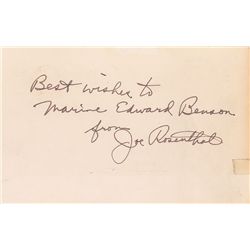 Best wishes to
Marine Edward Benson
from
Joe Rosenthal